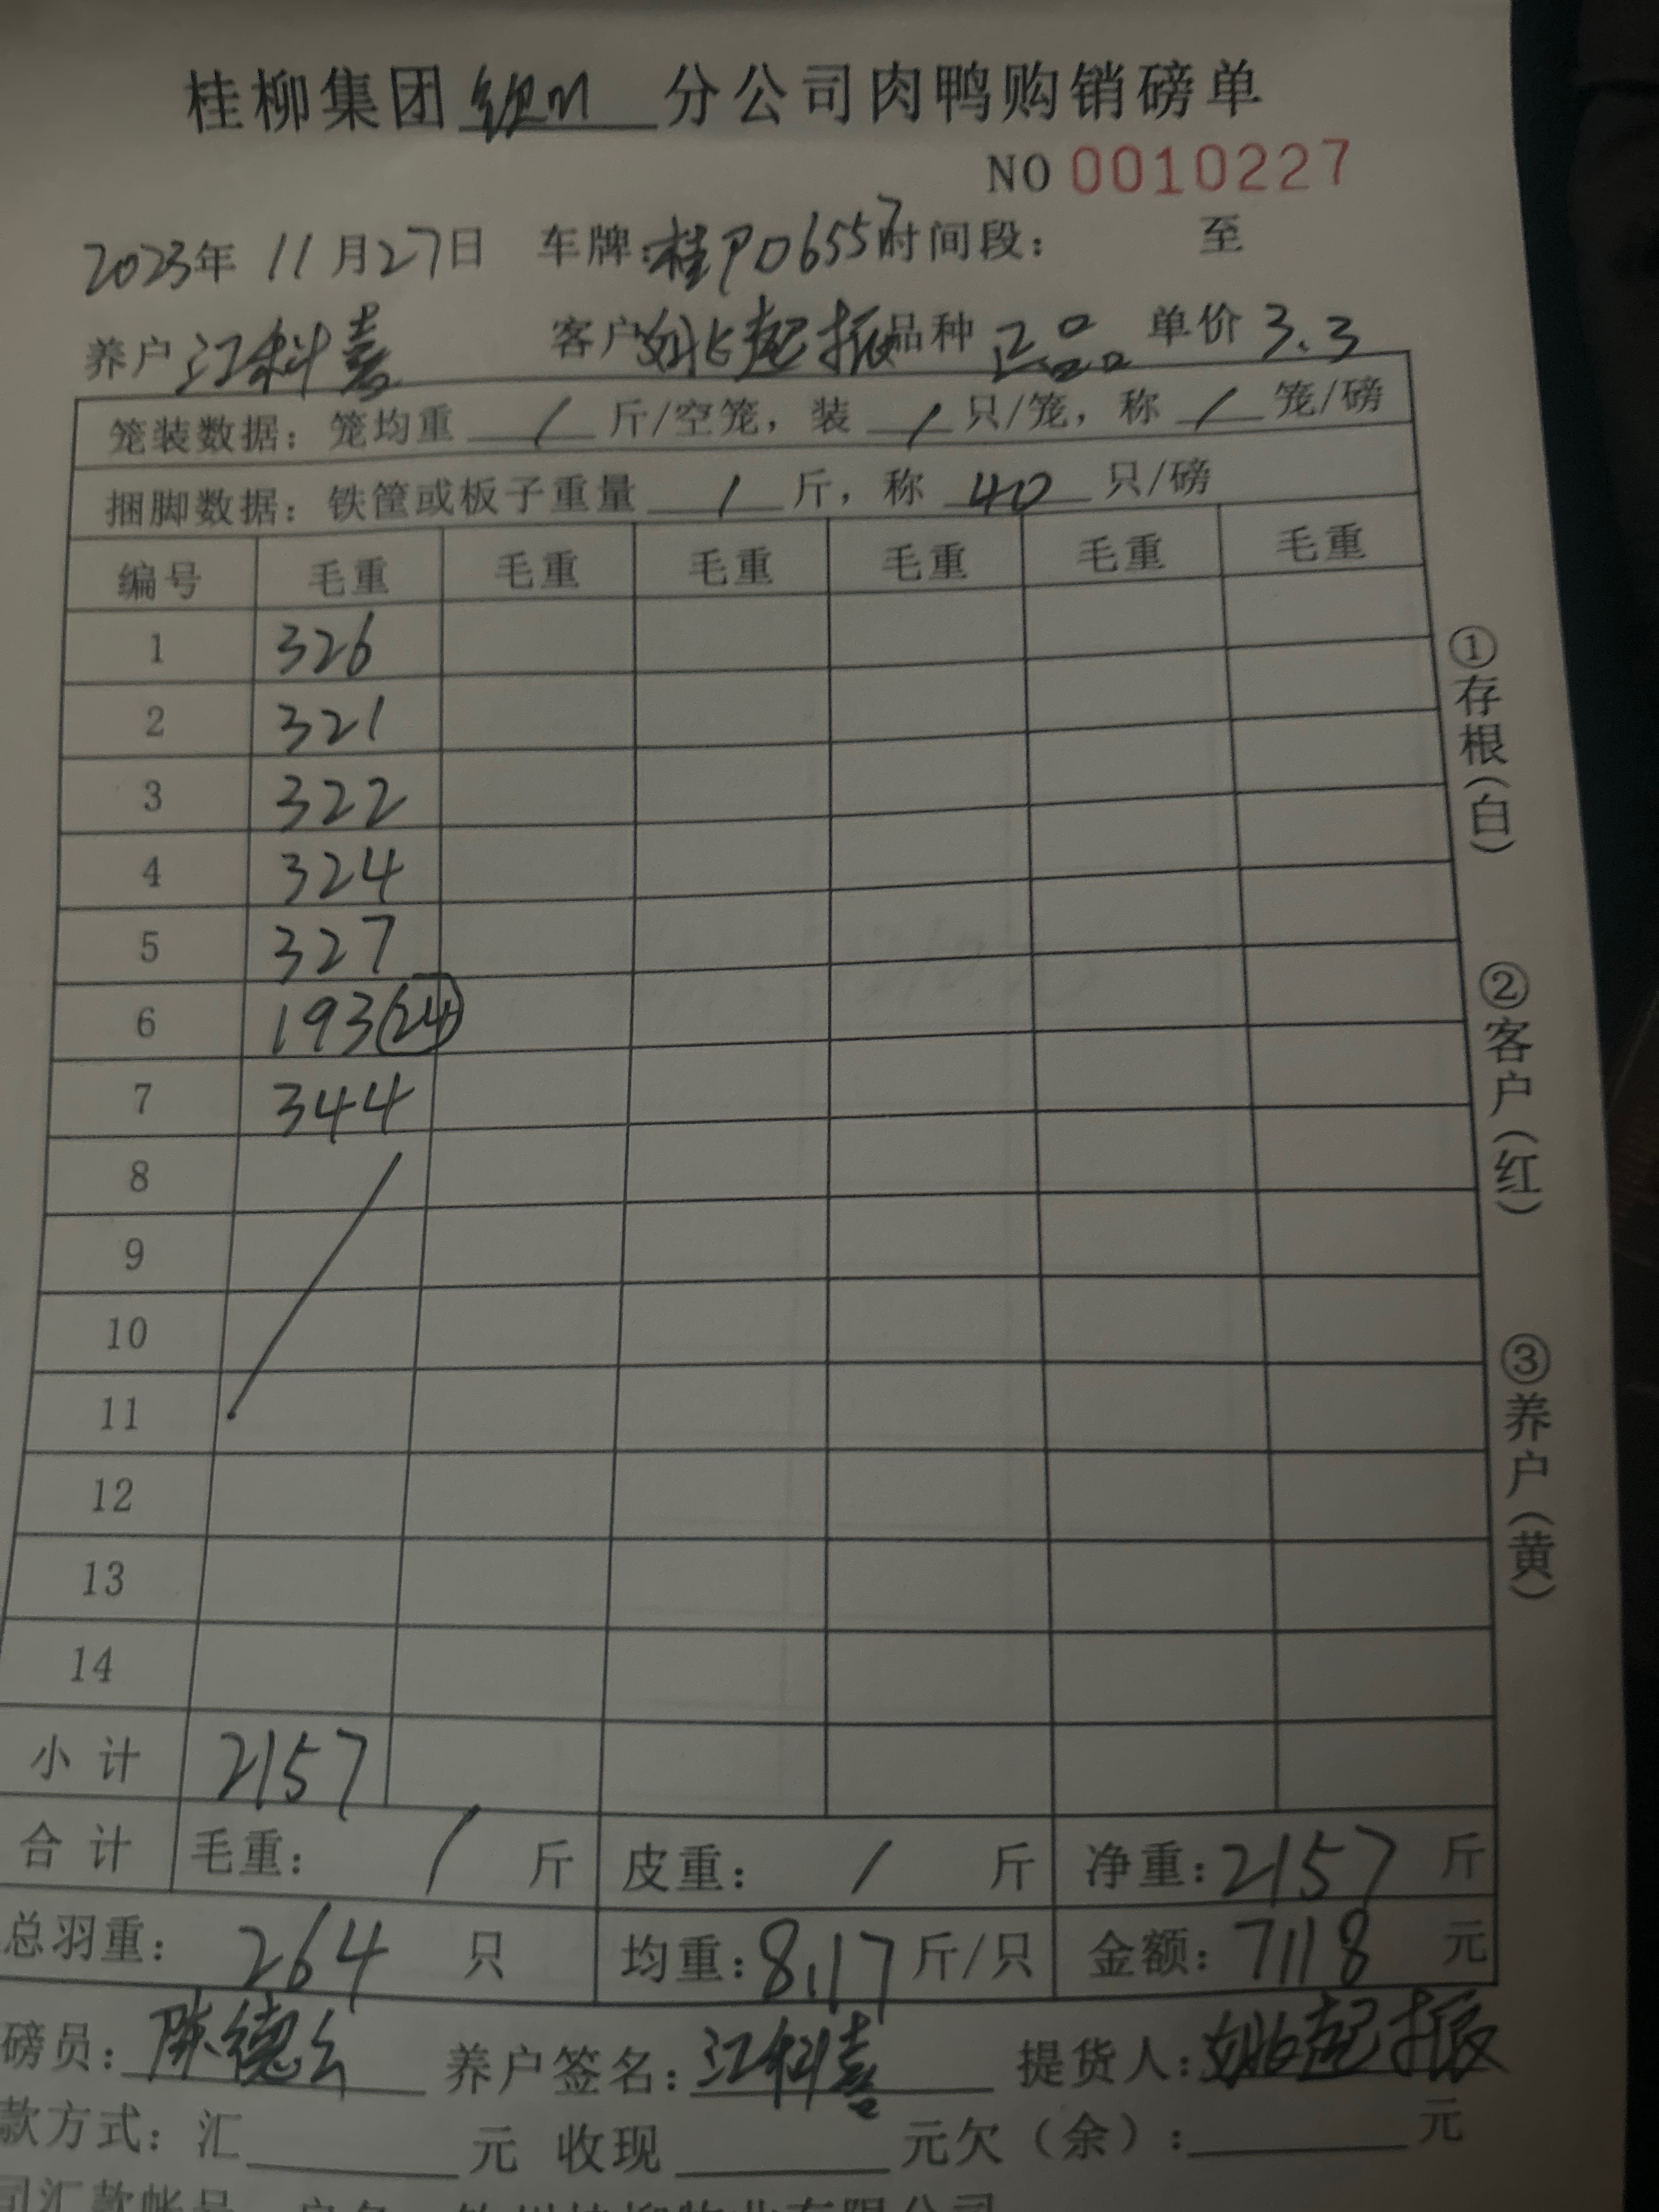 桂柳集团 钦州 分公司肉鸭购销磅单
NO 0010227
2023年 11月27日 车牌:桂PD6557 时间段: 至
养户 江科喜 客户 姚起振 品种 正品 单价 3.3
笼装数据: 笼均重 / 斤/空笼, 装 / 只/笼, 称 / 笼/磅
捆脚数据: 铁筐或板子重量 / 斤, 称 40 只/磅
编号 毛重 毛重 毛重 毛重 毛重 毛重
1 326
2 321
3 322
4 324
5 327
6 193(24)
7 344
8
9
10
11
12
13
14
小计 2157
合计 毛重: / 斤 皮重: / 斤 净重:2157 斤
总羽重: 264 只 均重:8.17斤/只 金额:7118 元
磅员: 陈德 养户签名:江科喜 提货人:姚起振
款方式: 汇 元 收现 元欠(余): 元
司汇款帐号
①存根(白)
②客户(红)
③养户(黄)